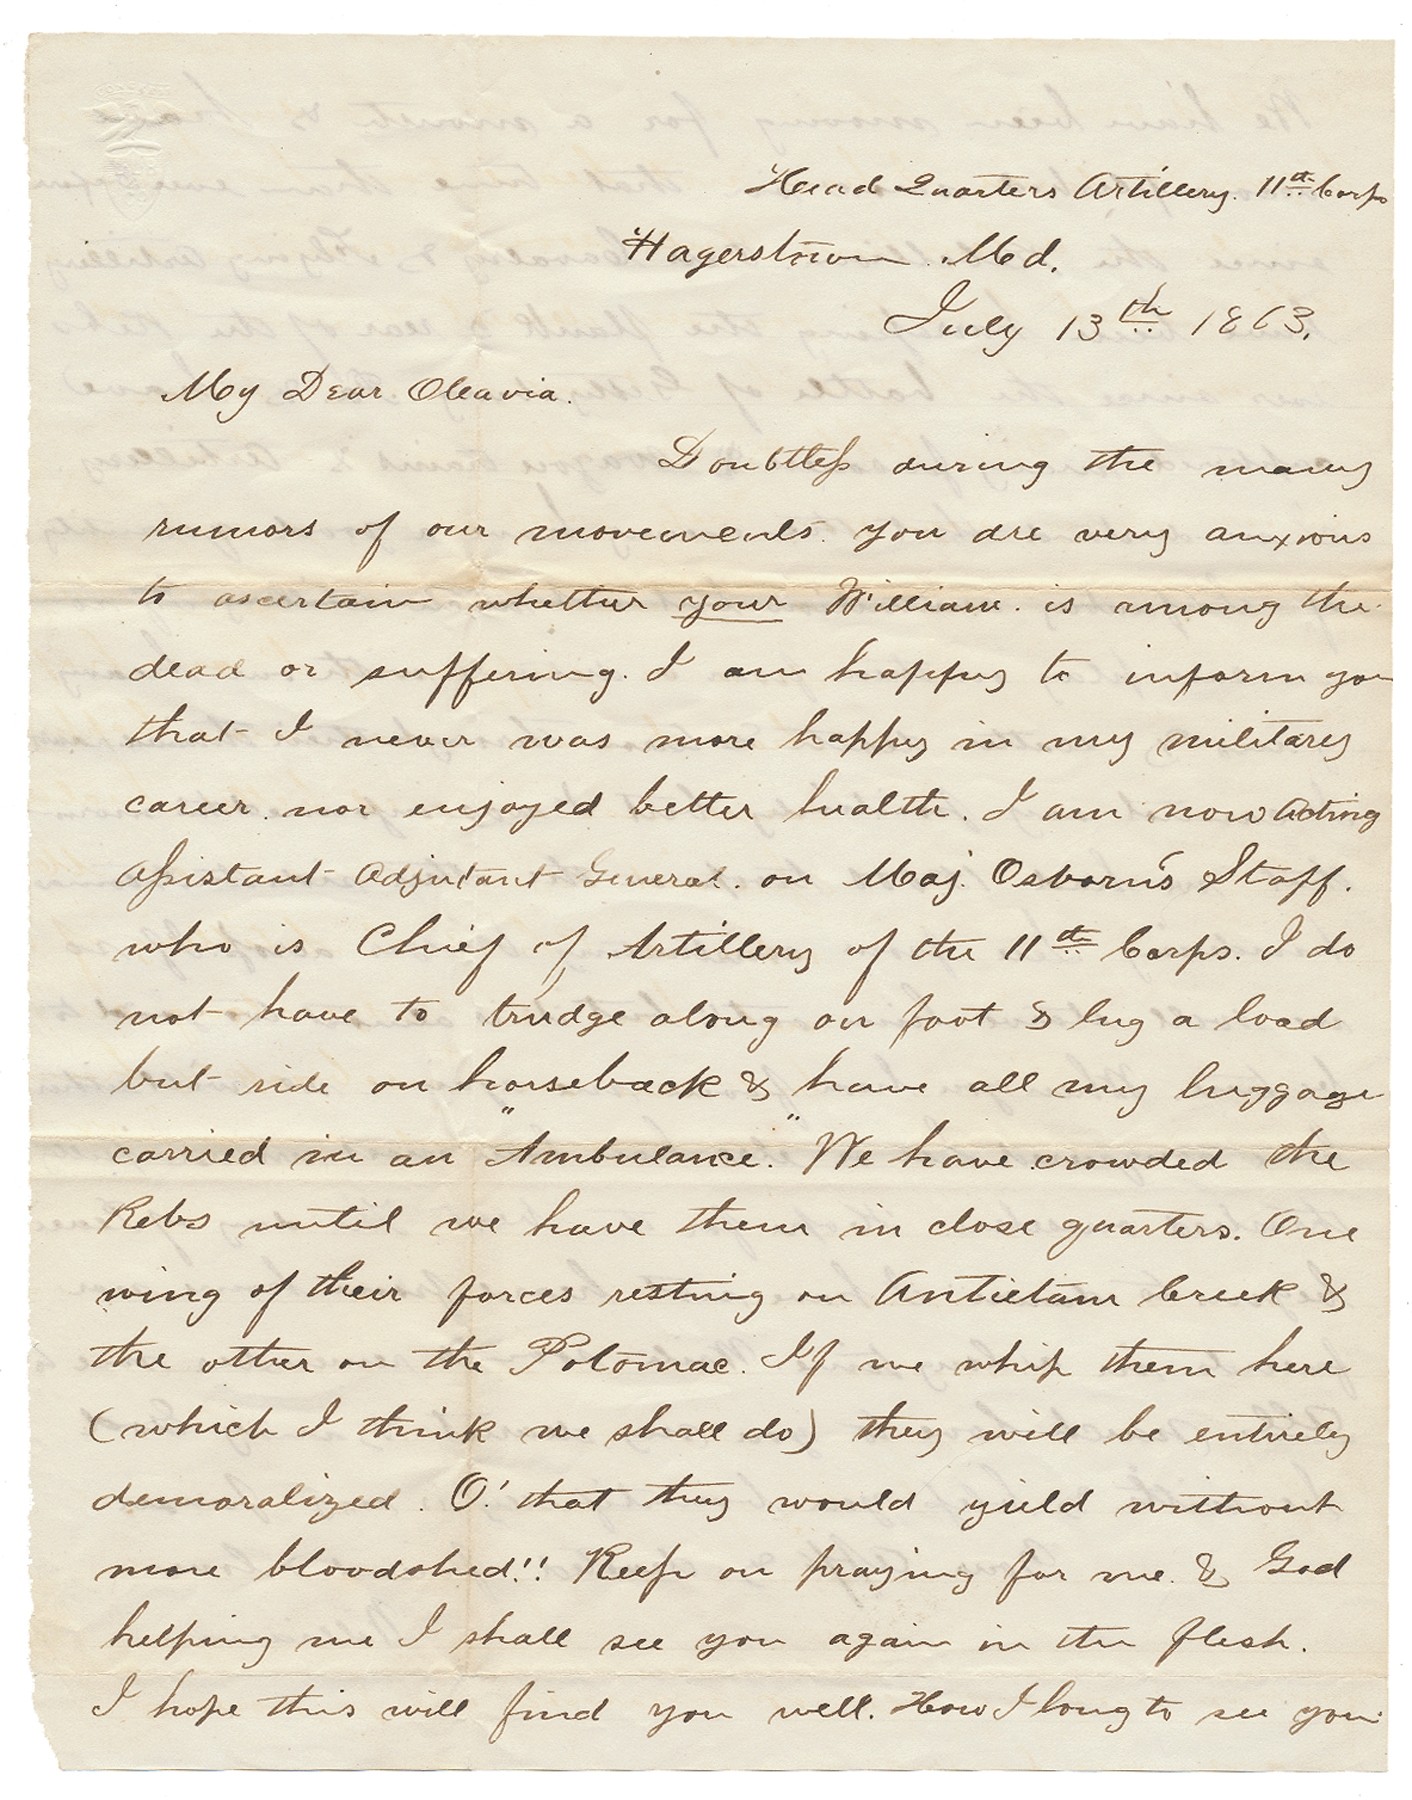 Head Quarters Artillery. 11th Corps
Hagerstown. Md.
July 13th 1863.
My Dear Oleavia.
Doubtless during the many
rumors of our movements. you are very anxious
to ascertain whether your William. is among the
dead or suffering. I am happy to inform you
that I never was more happy in my military
career. nor enjoyed better health. I am now acting
Assistant Adjutant General. on Maj. Osborn's Staff.
who is Chief of Artillery of the 11th Corps. I do
not have to trudge along on foot & lug a load
but ride on horseback & have all my luggage
carried in an "Ambulance." We have crowded the
Rebs until we have them in close quarters. One
wing of their forces resting on Antietam Creek &
the other on the Potomac. If we whip them here
(which I think we shall do) they will be entirely
demoralized. O! that they would yield without
more bloodshed!! Keep on praying for me. & God
helping me I shall see you again in the flesh.
I hope this will find you well. How I long to see you